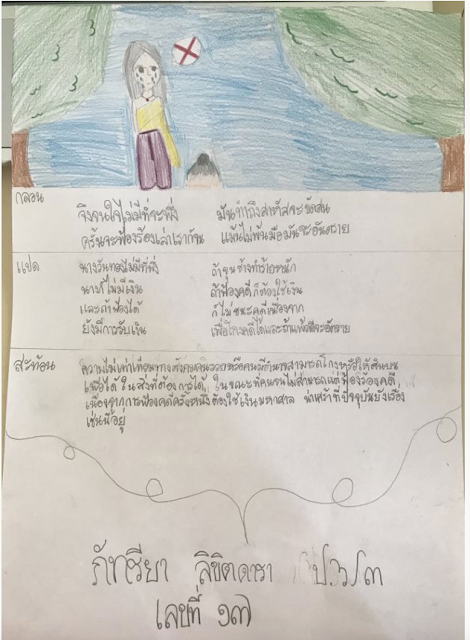 กลอน
จึงจนใจไม่มีที่จะพึ่ง มันทำถึงสาหัสจะขัดสน
ครั้นจะฟ้องร้องเล่าเราก็จน แม้นไม่พ้นมือมันจะอันตราย
แปล
นางวันทองไม่มีที่พึ่ง ถ้าขุนช้างทำร้ายหนัก
นางก็ไม่มีเงิน ถ้าฟ้องคดีก็ต้องใช้เงิน
และถ้าฟ้องได้ ก็ไม่ชนะคดีเนื่องจาก
ยังมีการรับเงิน เพื่อโกงคดีได้และถ้าแพ้ก็จะอันตราย
สะท้อน
ความไม่เท่าเทียมทางสังคม คนรวยหรือคนมีอำนาจสามารถโกงหรือใช้สินบน
เพื่อได้ในสิ่งที่ต้องการได้, ในขณะที่คนจนไม่สามารถแม้ฟ้องร้องคดี,
เนื่องจากการฟ้องคดีครั้งหนึ่งต้องใช้เงินมหาศาล น่าเศร้าที่ปัจจุบันยังเรื่อง
เช่นนี้อยู่
ภัทรียา ลิขิตดารา
เลขที่ ๑๗